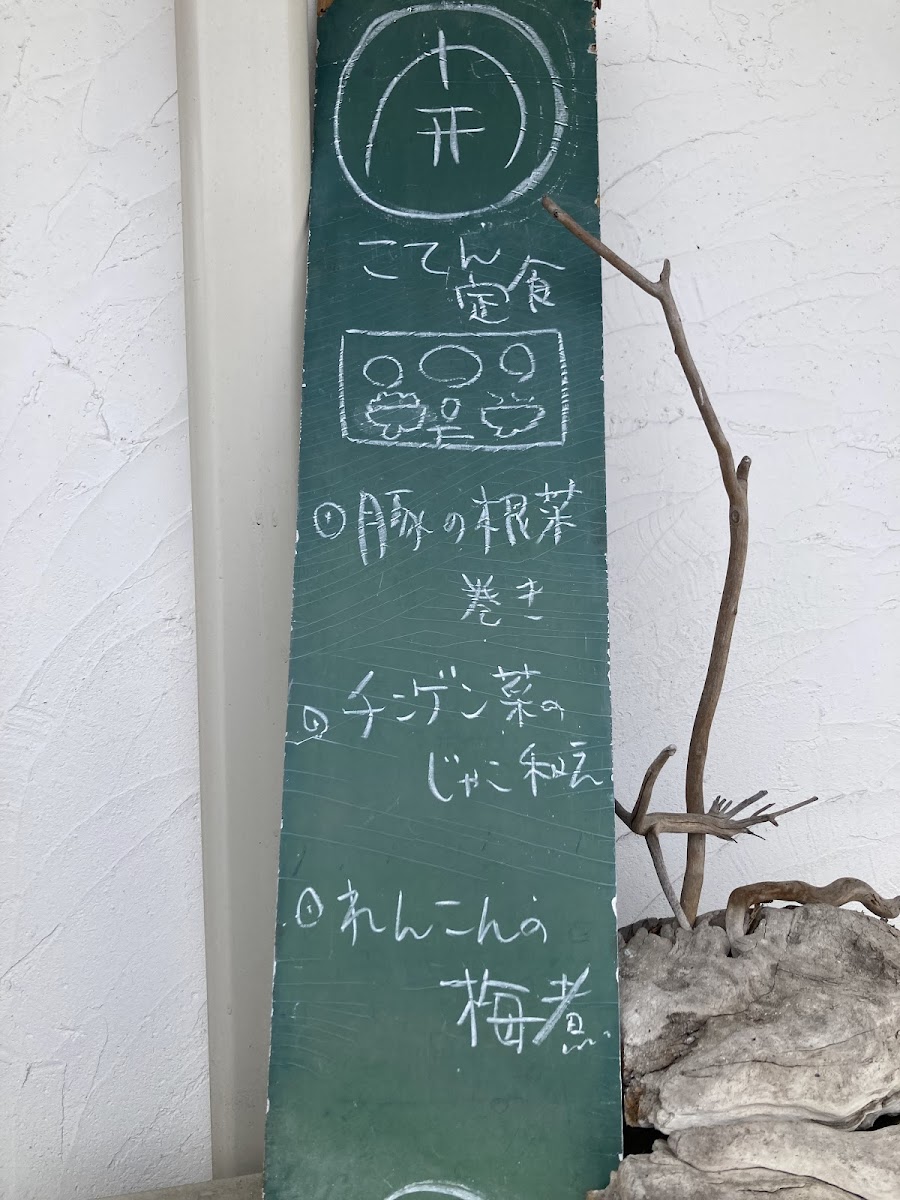 こてん
定食
豚の根菜
巻き
チンゲン菜の
じゃこ和え
れんこんの
梅煮